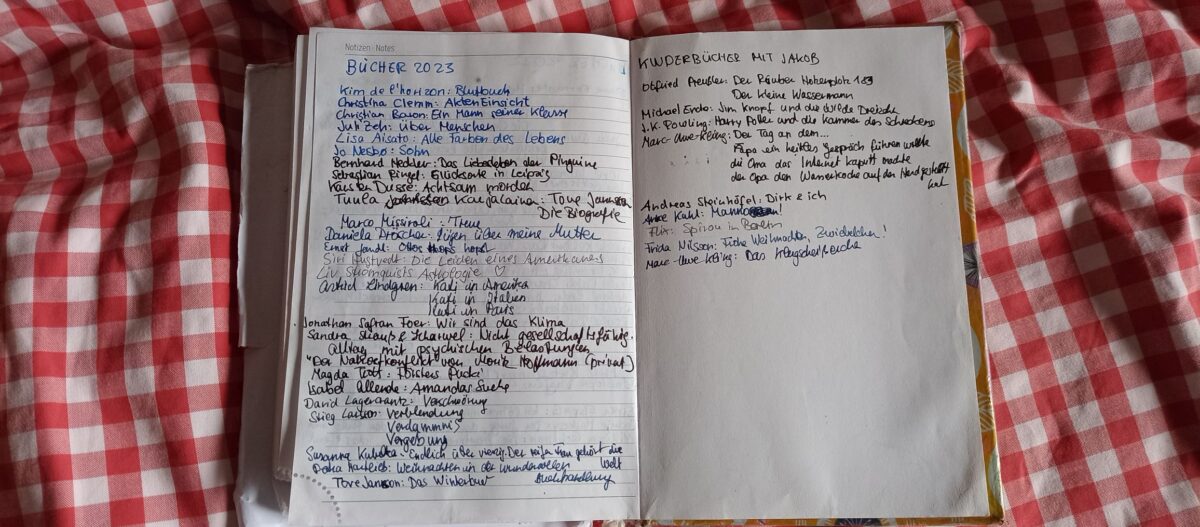 Notizen · Notes
BÜCHER 2023
Kim de l'horizon: Blutbuch
Christina Clemm: AktenEinsicht
Christian Baron: Ein Mann seiner Klasse
Juli Zeh: Über Menschen
Lisa Aisato: Alle Farben des Lebens
Jo Nesbo: Sohn
Bernhard : Das Liebesleben der Pinguine
Sebastian Ringel: Glücksorte in Leipzig
Karsten Dusse: Achtsam morden
Tuula Karjalainen: Tove Jansson
Die Biografie
Marco Missiroli: Treue
Daniela Dröscher: Lügen über meine Mutter
Ernst Jandl: Ottos Mops hopst
Siri Hustvedt: Die Leiden eines Amerikaners
Liv Strömquists Astrologie ♡
Astrid Lindgren: Kati in Amerika
Kati in Italien
Kati in Paris
Jonathan Safran Foer: Wir sind das Klima
Sandra Strauß & Scharwel: Nicht gesellschaftsfähig
Alltag mit psychischen Belastungen
"Der Nahostkonflikt" von Hoffmann (privat)
Magda : Försters Pucki
Isabel Allende: Amandas Suche
David Lagercrantz: Verschwörung
Stieg Larsson: Verblendung
Verdammnis
Vergebung
Susanna : Endlich über vierzig. Der reifen Frau gehört die
Welt
Petra Hartlieb: Weihnachten in der wundervollen
Buchhandlung
Tove Jansson: Das Winterbuch
KINDERBÜCHER MIT JAKOB
Otfried Preußler: Der Räuber Hotzenplotz 1
Der kleine Wassermann
Michael Ende: Jim Knopf und die wilde Dreizehn
J.K. Rowling: Harry Potter und die Kammer des Schreckens
Marc-Uwe-Kling: Der Tag an dem...
Papa ein heikles Gespräch führen wollte
die Oma das Internet kaputt machte
der Opa den Wasserkocher auf den Herd gestellt
hat
Andreas Steinhöfel: Dirk & ich
Kuhl:
Flix: Spirou in Berlin
Frida Nilsson: Frohe Weihnachten, Zwiebelchen!
Marc-Uwe Kling: Das Klugscheißerchen